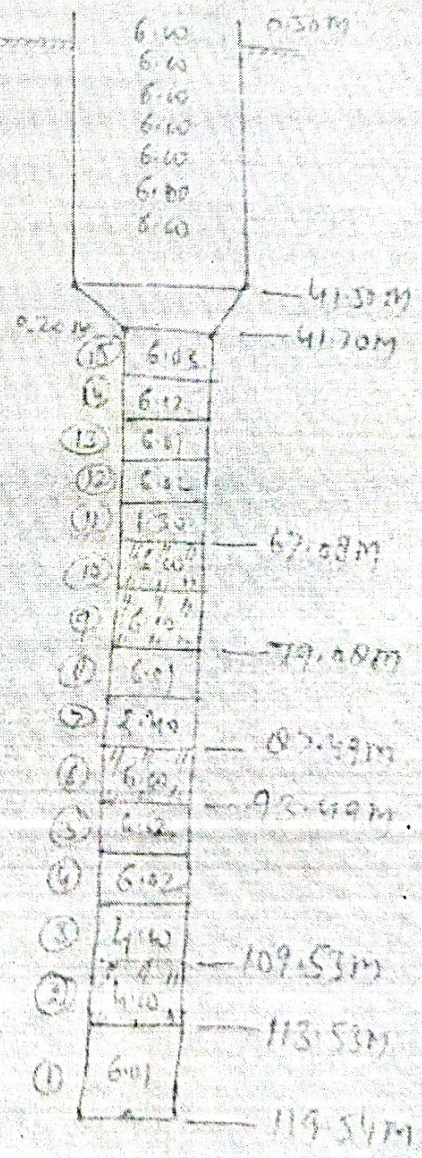 6.00 0.50M
6.00
6.00
6.00
6.00
6.00
6.00
41.50M
0.20M 41.70M
15 6.03
14 6.02
13 6.01
12 6.02
11 1.30
67.08M
10 6.00
9 6.00
79.08M
8 6.01
7 2.40
87.49M
6 6.00
93.49M
5 6.02
4 6.02
3 4.00
109.53M
2 4.00
113.53M
1 6.01
119.54M